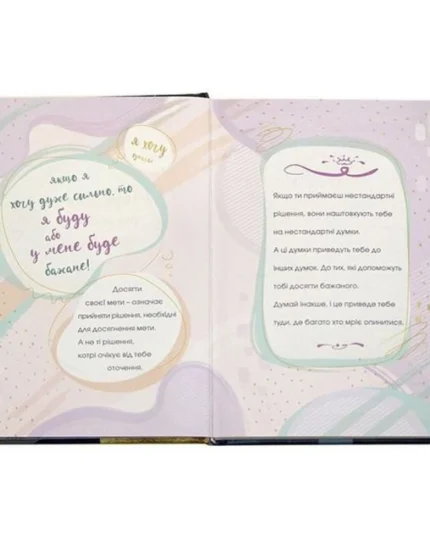 я хочу
якщо я
хочу дуже сильно, то
я буду
або
у мене буде
бажане!
Досягти
своєї мети – означає
прийняти рішення, необхідні
для досягнення мети.
А не ті рішення,
котрі очікує від тебе
оточення.
Якщо ти приймаєш нестандартні
рішення, вони наштовхують тебе
на нестандартні думки.
А ці думки приведуть тебе до
інших думок. До тих, які допоможуть
тобі досягти бажаного.
Думай інакше, і це приведе тебе
туди, де багато хто мріє опинитися.